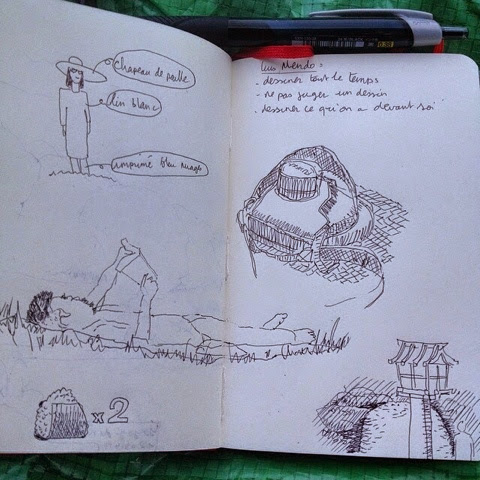 chapeau de paille
lin blanc
imprimé bleu nuage
x 2
Luis Mendo :
- dessiner tout le temps
- ne pas juger un dessin
- dessiner ce qu'on a devant soi